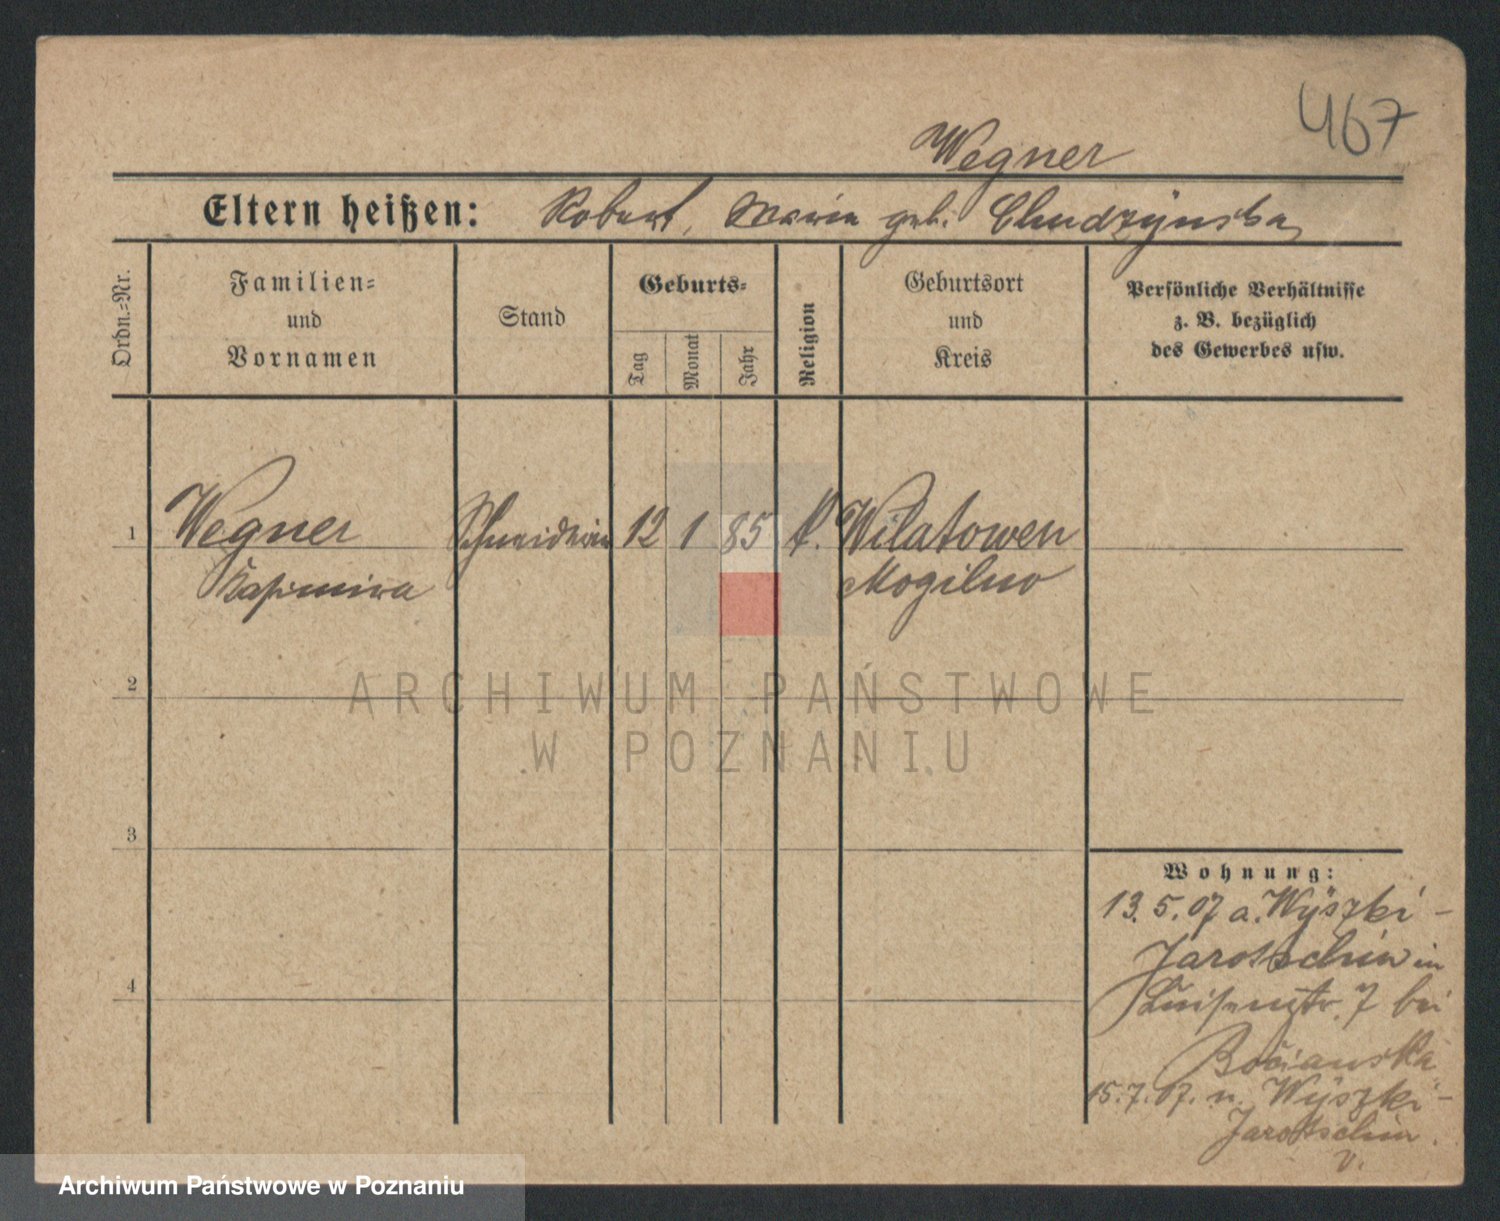 467
Wegner
Eltern heißen: Robert, Maria geb. Chudzynska
Ordn.-Nr.
Familien-
und
Vornamen
Stand
Geburts-
Tag
Monat
Jahr
Religion
Geburtsort
und
Kreis
Persönliche Verhältnisse
z. B. bezüglich
des Gewerbes usw.
1 Wegner Schneiderin 12 1 85 k. Wilatowen
Kasimira Mogilno
2
ARCHIWUM PAŃSTWOWE
W POZNANIU
3
Wohnung:
13.5.07 a. Wyszki-
Jarotschin in
Luisenstr. 7 bei
4
Bocianska
15.7.07. n. Wyszki-
Jarotschin.
v.
Archiwum Państwowe w Poznaniu